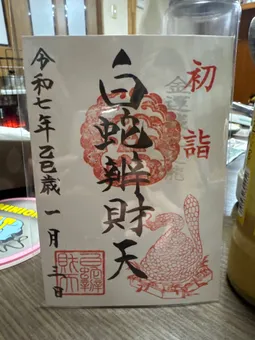 初詣
白蛇辨財天
令和七年乙巳歳一月三日